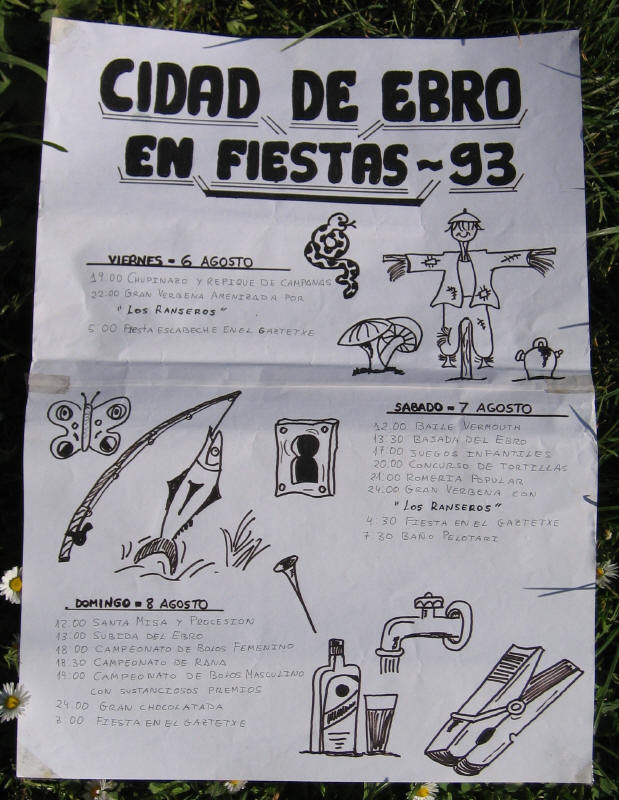 CIDAD DE EBRO
EN FIESTAS ~ 93
VIERNES = 6 AGOSTO
19:00 CHUPINAZO Y REPIQUE DE CAMPANAS
22:00 GRAN VERBENA AMENIZADA POR
"LOS RANSEROS"
5:00 FIESTA ESCABECHE EN EL GAZTETXE
SABADO = 7 AGOSTO
12:00 BAILE VERMOUTH
13:30 BAJADA DEL EBRO
17:00 JUEGOS INFANTILES
20:00 CONCURSO DE TORTILLAS
21:00 ROMERIA POPULAR
24:00 GRAN VERBENA CON
"LOS RANSEROS"
4:30 FIESTA EN EL GAZTETXE
7:30 BAÑO PELOTARI
DOMINGO = 8 AGOSTO
12:00 SANTA MISA Y PROCESION
13:00 SUBIDA DEL EBRO
18:00 CAMPEONATO DE BOLOS FEMENINO
18:30 CAMPEONATO DE RANA
19:00 CAMPEONATO DE BOLOS MASCULINO
CON SUSTANCIOSOS PREMIOS
24:00 GRAN CHOCOLATADA
3:00 FIESTA EN EL GAZTETXE